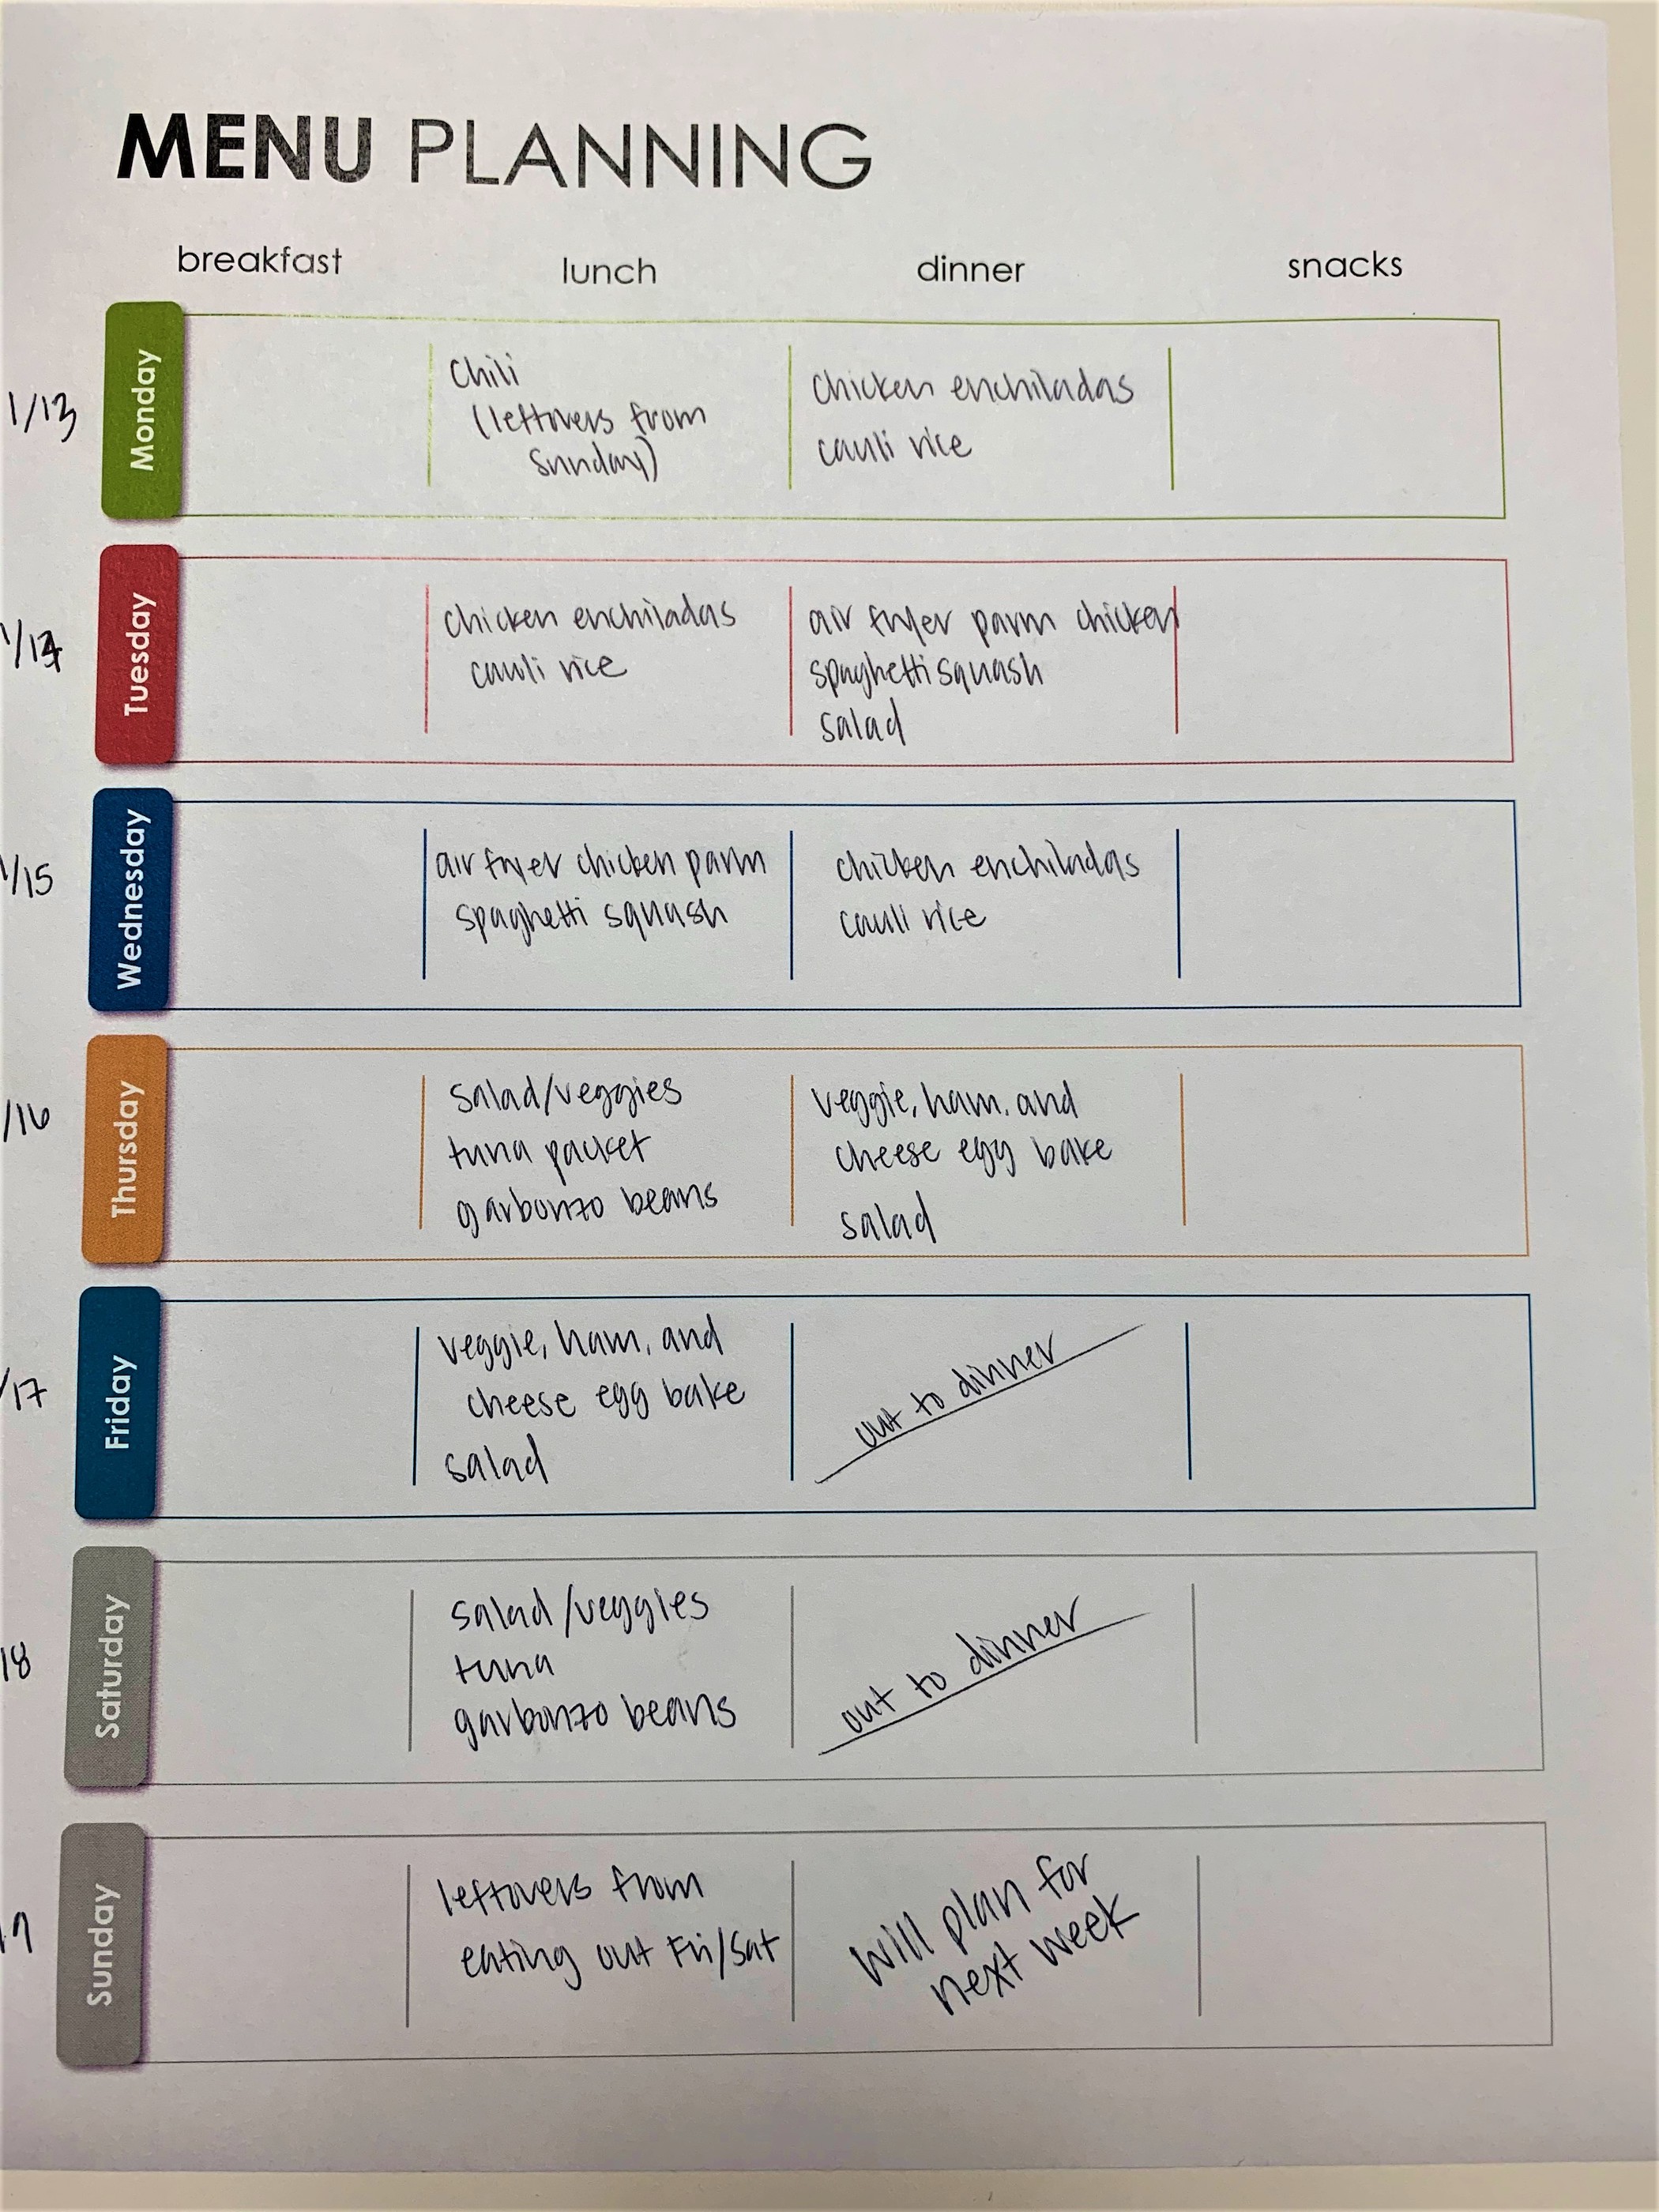 MENU PLANNING
breakfast lunch dinner snacks
1/13 Monday
Chili
(leftovers from
Sunday)
chicken enchiladas
cauli rice
1/14 Tuesday
chicken enchiladas
cauli rice
air fryer parm chicken
spaghetti squash
salad
1/15 Wednesday
air fryer chicken parm
spaghetti squash
chicken enchiladas
cauli rice
/16 Thursday
salad/veggies
tuna packet
garbonzo beans
veggie, ham, and
cheese egg bake
salad
/17 Friday
veggie, ham, and
cheese egg bake
salad
out to dinner
18 Saturday
salad/veggies
tuna
garbonzo beans
out to dinner
19 Sunday
leftovers from
eating out Fri/Sat
will plan for
next week